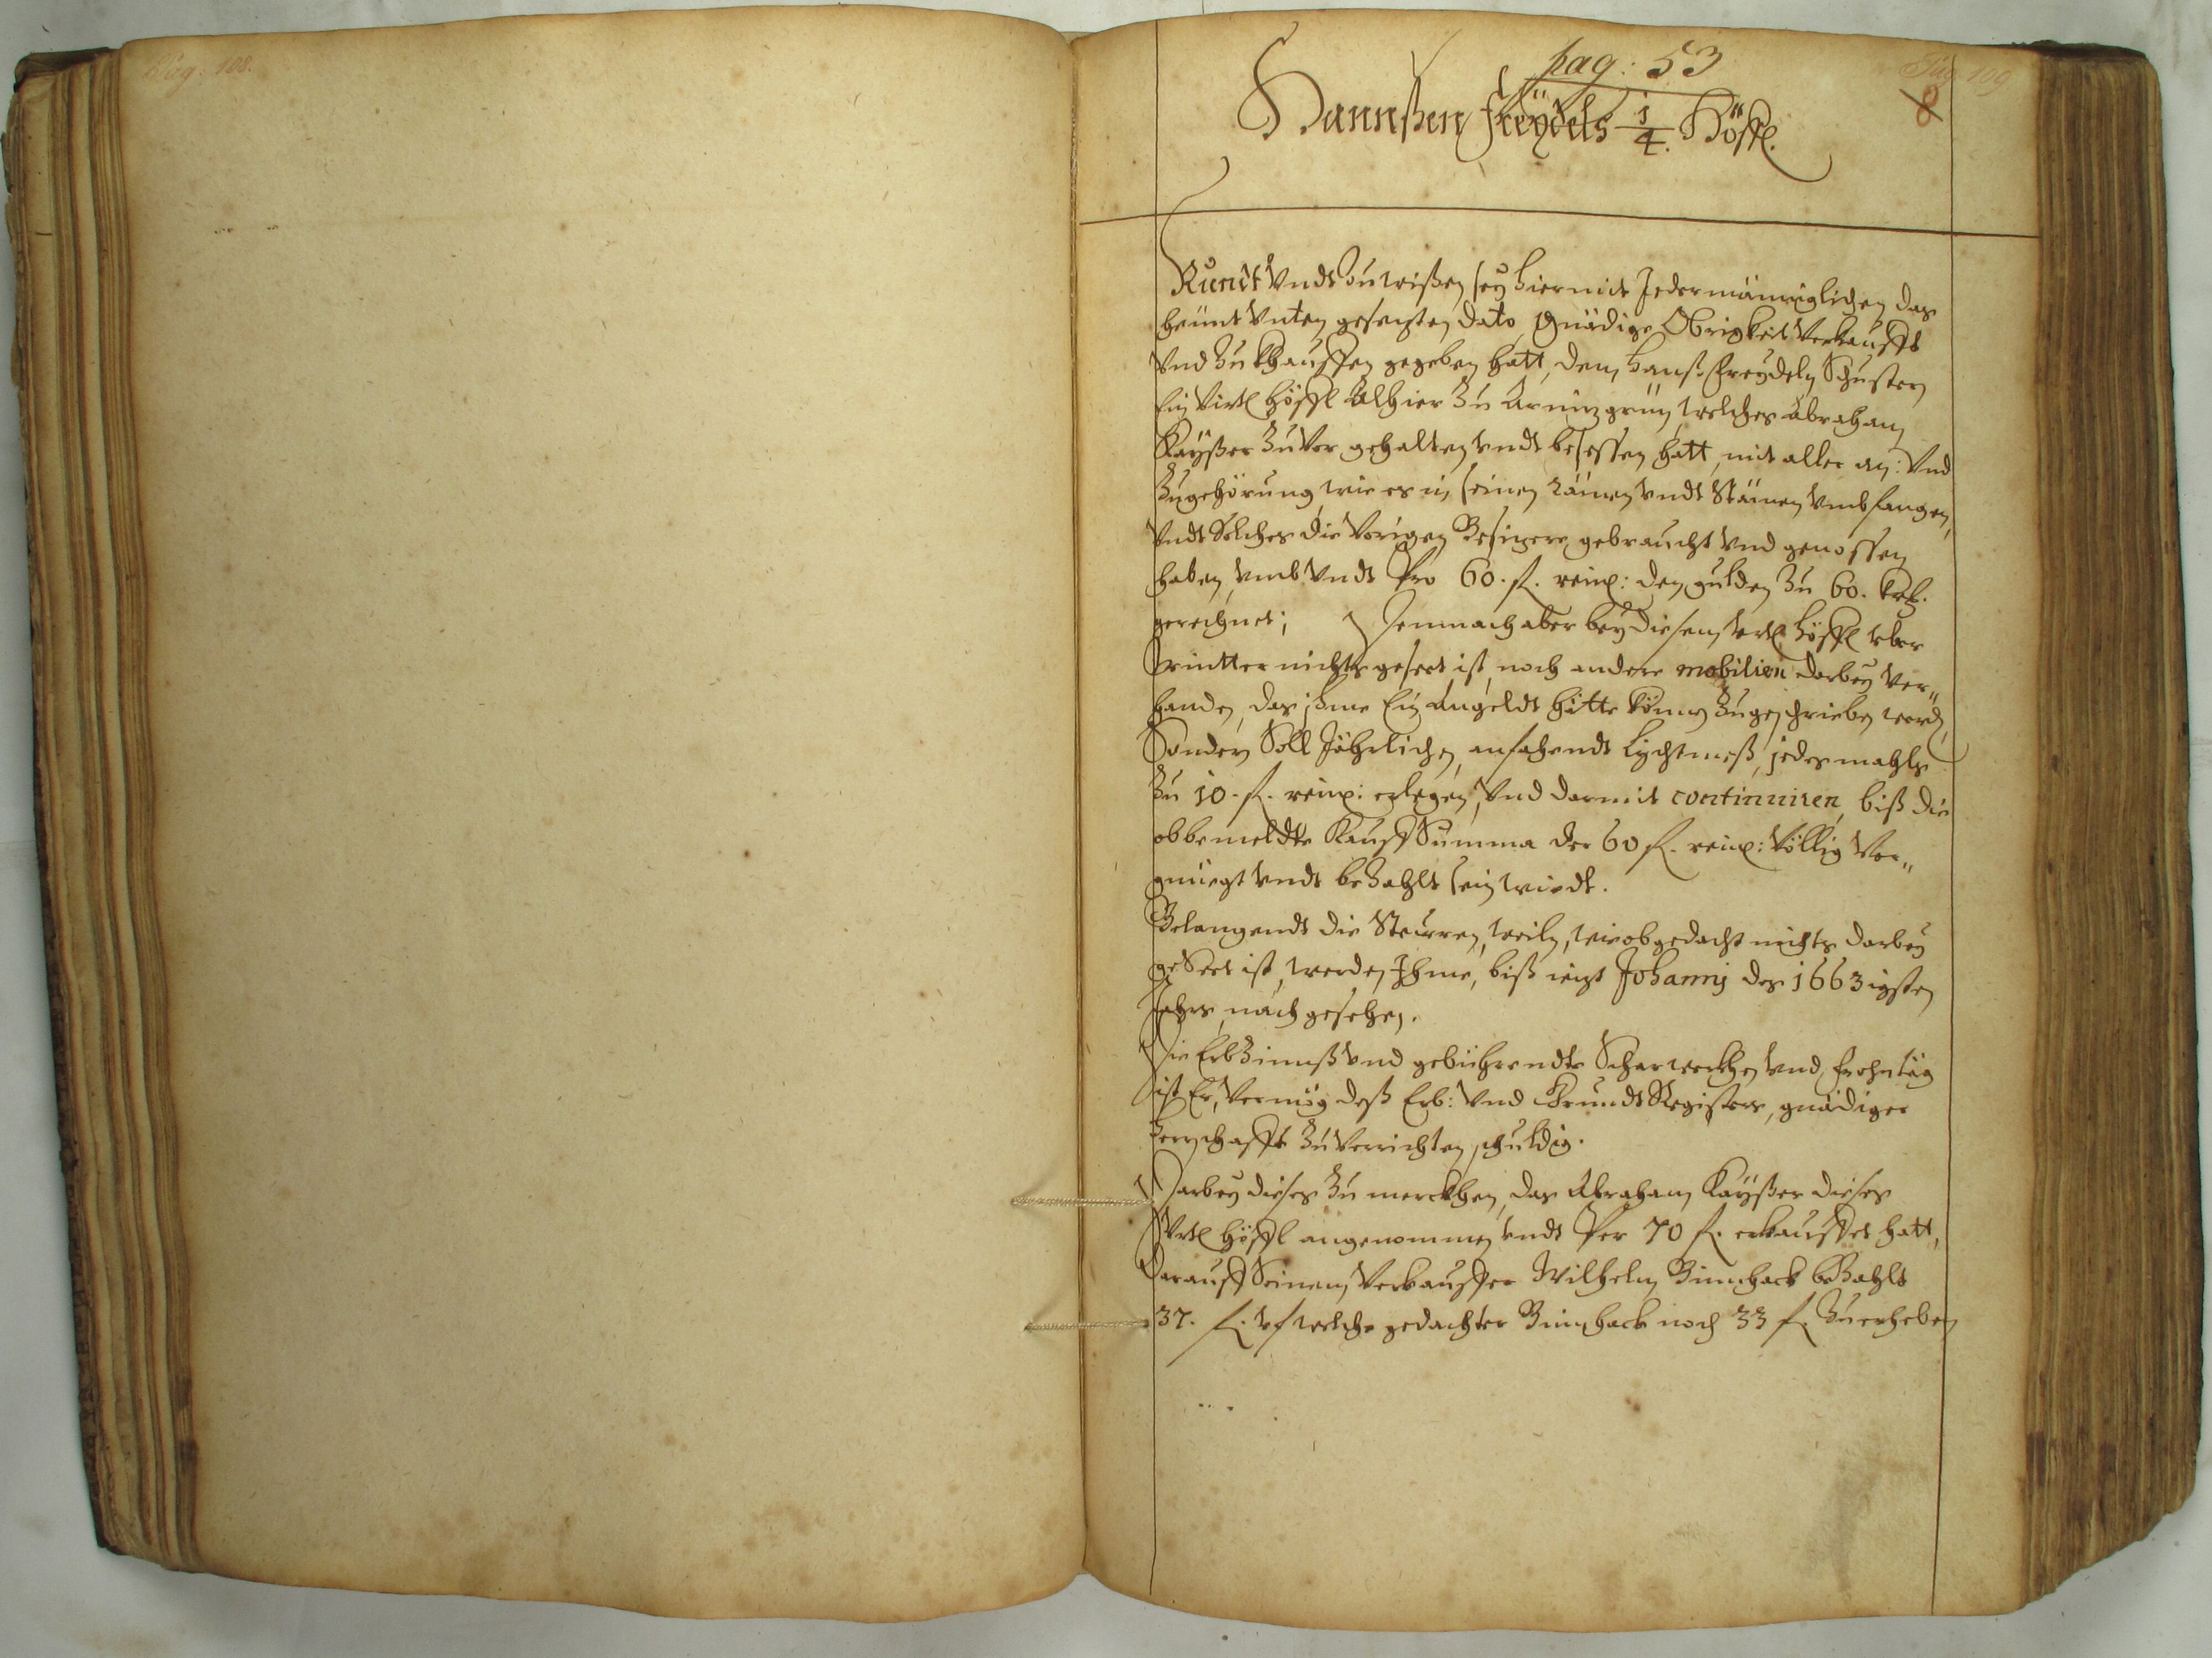 Pag: 108.
pag: 53
Pag 109
8
Hannßen Freÿdels 1/4. Höffl.
Kundt vndt Zu wißen seÿ hiermit Jedermänniglichen das
heünt vnten gesezten dato, Gnädige Obrigkeit Verkaufft
vnd Zu Khauffen gegeben hatt, dem Hanß Freÿdeln Schustern
Ein Virtl Höffl Alhier Zu Arnizgrün, welches Abraham
Kaÿßer ZuVor gehalten vndt besessen hatt, mit aller an: vnd
Zugehörung wie es in seinen Räinen vndt Stäinen vmbfangen,
vndt Solches die Vorigen Besizere gebraucht vnd genossen
haben, vmb vndt Pro 60. fl. reinl: den gulden Zu 60. krl.
gerechnet; Demnach aber beÿ diesem Virtl Höffl vber
Wintter nichts geseet ist, noch andere mobilien darbeÿ Ver¬
handen, das ihme Ein Angeldt hätte können Zugeschrieben werdn,
Sondern Soll Jährlichen, anfahendt Liechtmeß, jedesmahls
Zu 10. fl. reinl: erlegen, vnd darmit continuiren, biß die
obbemeldte KauffSumma der 60 fl. reinl: Völlig Ver¬
gnüegt vndt beZahlt sein wirdt.
Belangendt die Steurren, weiln, wie obgedacht nichts darbeÿ
geSeet ist, werden Ihme, biß iezt Johannj des 1663igsten
Jahrs, nachgesehen.
Die ErbZinnß vnd gebührendte Scharwerkhen vnd Frohntäg
ist Er, Vermög deß Erb: vnd GrundtRegisters, gnädiger
Herrschafft ZuVerrichten schuldig.
Darbeÿ dieses Zu merckhen, das Abraham Kaÿßer dieses
Virtl Höffl angenommen vndt Per 70 fl. erkauffet hatt,
Darauff Seinem Verkauffer Wilhelm Bimhack beZahlt
37. fl. vf welche gedachter Bimhack noch 33 fl. Zuerheben